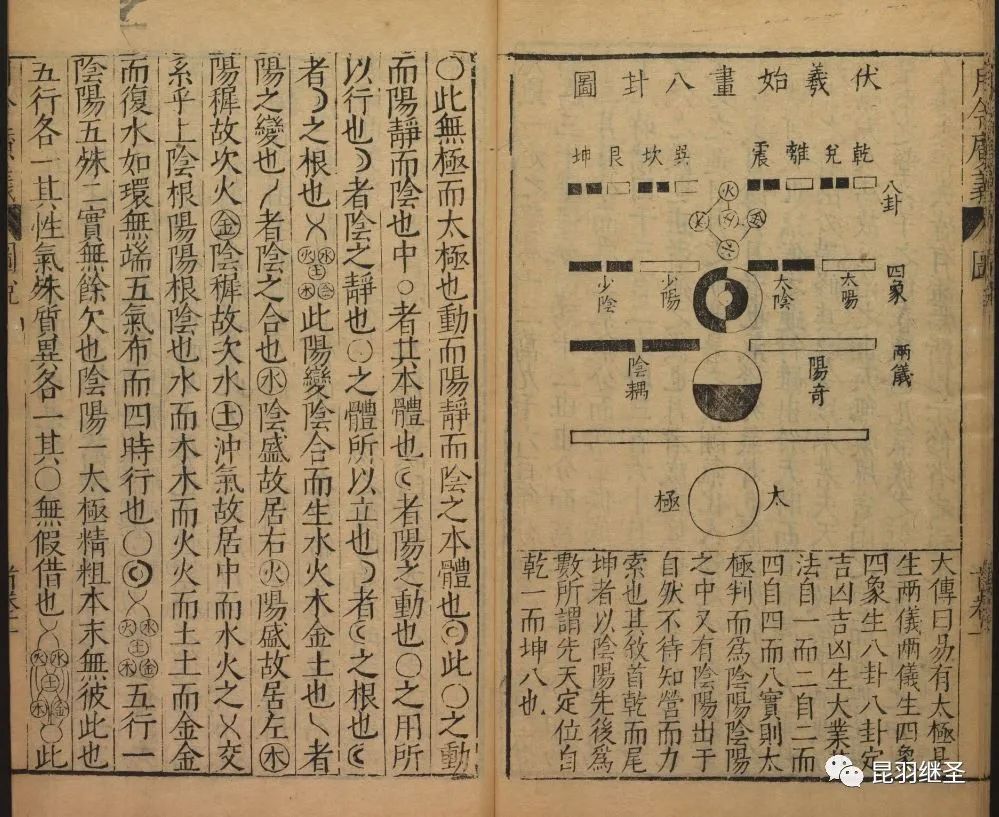 令廣義
伏羲始畫八卦圖
八卦
乾兌離震巽坎艮坤
火
四象
太陽
太陰
少陽
少陰
兩儀
陽奇
陰耦
太極
大傳曰易有太極是
生兩儀兩儀生四象
四象生八卦八卦定
吉凶吉凶生大業
法自一而二自二而
四自四而八實則太
極判而爲陰陽陰陽
之中又有陰陽出于
自然不待知營而力
索也其敘首乾而尾
坤者以陰陽先後爲
數所謂先天定位自
乾一而坤八也
○此無極而太極也動而陽靜而陰之本體也此○之動
而陽靜而陰也中○者其本體也☾者陽之動也○之用所
以行也☽者陰之靜也○之體所以立也☽者☾之根也☾
者☽之根也水火土金木此陽變陰合而生水火木金土也㇏者
陽之變也丿者陰之合也水陰盛故居右火陽盛故居左木
陽穉故次火金陰穉故次水土沖氣故居中而水火之㐅交
系乎上陰根陽陽根陰也水而木木而火火而土土而金金
而復水如環無端五氣布而四時行也○水火土金木五行一
陰陽五殊二實無餘欠也陰陽一太極精粗本末無彼此也
五行各一其性氣殊質異各一其○無假借也水火土金木此
昆羽继圣